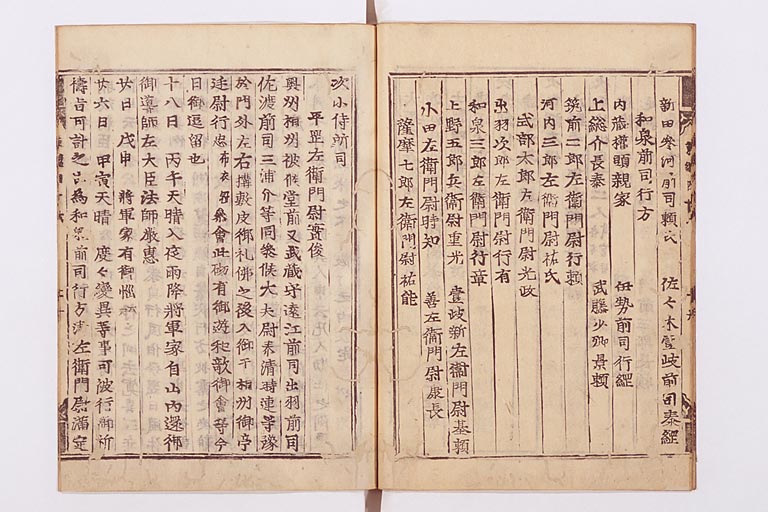 新田参河前司頼氏　佐々木壱岐前司泰綱
和泉前司行方
内蔵権頭親家　伊勢前司行綱
上総介長泰　武藤少卿景頼
筑前二郎左衛門尉行頼
河内三郎左衛門尉祐氏
式部太郎左衛門尉光政
出羽次郎左衛門尉行有
和泉三郎左衛門尉行章
上野五郎兵衛尉重光　壹岐新左衛門尉基頼
小田左衛門尉時知　善左衛門尉康長
薩摩七郎左衛門尉祐能
次小侍所司
平罡左衛門尉實俊
奥州相州被候堂前又武蔵守遠江前司出羽前司
佐渡前司三浦介等同参候大夫尉泰清時連等豫
於門外左右搆敷皮御礼佛之後入御于相州御亭
廷尉行忠布衣召参會此砌有御遊和歌御會等今
日御逗留也
十八日　丙午天晴入夜雨降將軍家自山内還御
御導師左大臣法師嚴惠
廿日　戊申　將軍家有御惱
廿六日　甲寅天晴　變異等事可被行御祈
禱旨可計之為和泉前司行方清左衛門尉滿定